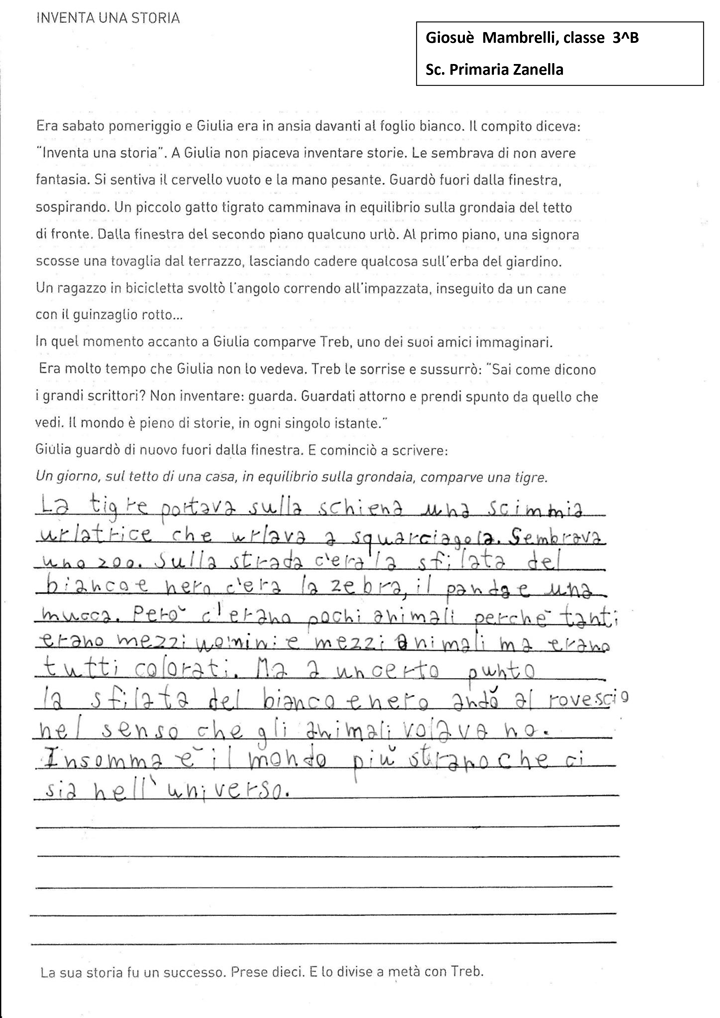 INVENTA UNA STORIA
Giosuè Mambrelli, classe 3^B
Sc. Primaria Zanella
Era sabato pomeriggio e Giulia era in ansia davanti al foglio bianco. Il compito diceva:
"Inventa una storia". A Giulia non piaceva inventare storie. Le sembrava di non avere
fantasia. Si sentiva il cervello vuoto e la mano pesante. Guardò fuori dalla finestra,
sospirando. Un piccolo gatto tigrato camminava in equilibrio sulla grondaia del tetto
di fronte. Dalla finestra del secondo piano qualcuno urlò. Al primo piano, una signora
scosse una tovaglia dal terrazzo, lasciando cadere qualcosa sull'erba del giardino.
Un ragazzo in bicicletta svoltò l'angolo correndo all'impazzata, inseguito da un cane
con il guinzaglio rotto...
In quel momento accanto a Giulia comparve Treb, uno dei suoi amici immaginari.
Era molto tempo che Giulia non lo vedeva. Treb le sorrise e sussurrò: "Sai come dicono
i grandi scrittori? Non inventare: guarda. Guardati attorno e prendi spunto da quello che
vedi. Il mondo è pieno di storie, in ogni singolo istante."
Giulia guardò di nuovo fuori dalla finestra. E cominciò a scrivere:
Un giorno, sul tetto di una casa, in equilibrio sulla grondaia, comparve una tigre.
La tigre portava sulla schiena una scimmia
urlatrice che urlava a squarciagola. Sembrava
uno zoo. Sulla strada c'era la sfilata del
bianco e nero c'era la zebra, il panda e una
mucca. Però c'erano pochi animali perchè tanti
erano mezzi uomini e mezzi animali ma erano
tutti colorati. Ma a un certo punto
la sfilata del bianco e nero andò al rovescio
nel senso che gli animali volavano.
Insomma è il mondo più strano che ci
sia nell'universo.
La sua storia fu un successo. Prese dieci. E lo divise a metà con Treb.